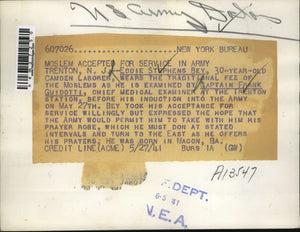 U.S. Army
607026
NEW YORK BUREAU
MOSLEM ACCEPTED FOR SERVICE IN ARMY
TRENTON, N.J. EDDIE STEPHENS BEY, 30-YEAR-OLD
CAMDEN LABORER, WEARS THE TRADITIONAL FEZ OF
THE MOSLEMS AS HE IS EXAMINED BY CAPTAIN FRANK
GUIDOTTI, CHIEF MEDICAL EXAMINER AT THE TRENTON
STATION, BEFORE HIS INDUCTION INTO THE ARMY
ON MAY 27TH. BEY TOOK HIS ACCEPTANCE FOR
SERVICE WILLINGLY BUT EXPRESSED THE HOPE THAT
THE ARMY WOULD PERMIT HIM TO TAKE WITH HIM HIS
PRAYER ROBE, WHICH HE MUST DON AT STATED
INTERVALS AND TURN TO THE EAST AS HE OFFERS
HIS PRAYERS. HE WAS BORN IN MACON, GA.
CREDIT LINE (ACME) 5/27/41 BURS 1A (GW)
A13547
F. DEPT.
N.E.A.